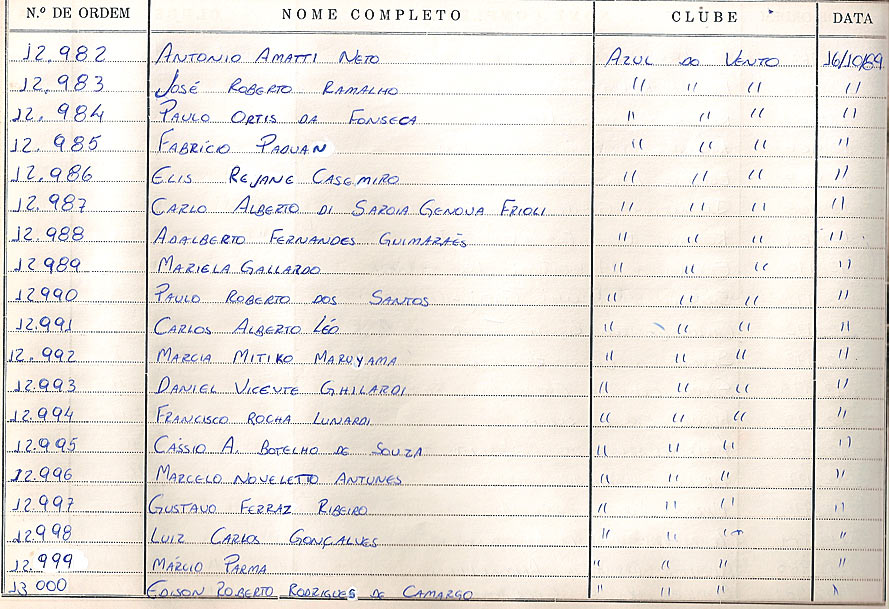 N.º DE ORDEM NOME COMPLETO CLUBE DATA
12.982 ANTONIO AMATTI NETO AZUL DO VENTO 16/10/69
12.983 JOSÉ ROBERTO RAMALHO " " " "
12.984 PAULO ORTIS DA FONSECA " " " "
12.985 FABRÍCIO PADUAN " " " "
12.986 ELIS REJANE CASEMIRO " " " "
12.987 CARLO ALBERTO DI SAROIA GENOVA FRIOLI " " " "
12.988 ADALBERTO FERNANDES GUIMARAÉS " " " "
12989 MARIELA GALLARDO " " " "
12990 PAULO ROBERTO DOS SANTOS " " " "
12.991 CARLOS ALBERTO LÉO " " " "
12.992 MARCIA MITIKO MARUYAMA " " " "
12.993 DANIEL VICENTE GHILARDI " " " "
12.994 FRANCISCO ROCHA LUNARDI " " " "
12.995 CÁSSIO A. BOTELHO DE SOUZA " " " "
12.996 MARCELO NOVELETTO ANTUNES " " " "
12.997 GUSTAVO FERRAZ RIBEIRO " " " "
12.998 LUIZ CARLOS GONÇALVES " " " "
12.999 MÁRCIO PARMA " " " "
13 000 EDISON ROBERTO RODRIGUES DE CAMARGO " " " "